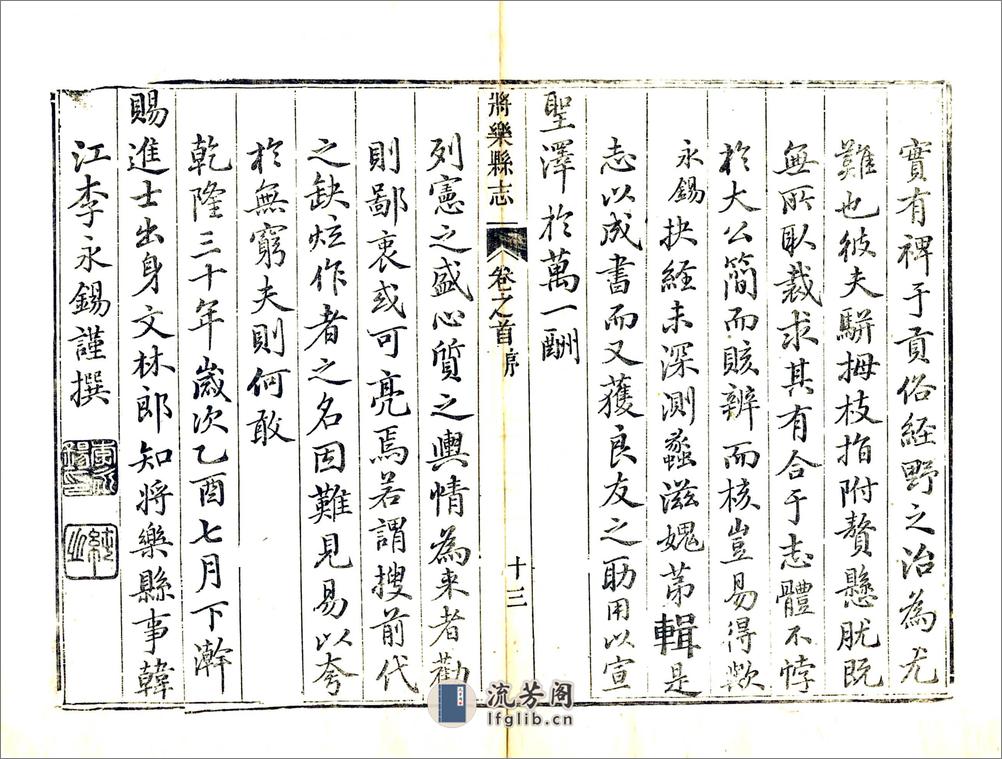 實有裨于貢俗経野之治為尤
難也彼夫駢拇枝指附贅懸肬既
無所取裁求其有合于志體不悖
於大公簡而賅辨而核豈易得歟
永錫抉経未深測蠡滋媿苐輯是
志以成書而又獲良友之助用以宣
聖澤於萬一酬
將樂縣志
卷之首
序
十三
列憲之盛心質之輿情為来者勸
則鄙衷或可亮焉若謂搜前代
之缺炫作者之名因難見易以夸
於無窮夫則何敢
乾隆三十年歲次乙酉七月下澣
賜進士出身文林郎知將樂縣事韓
江李永錫謹撰
流芳阁
lfglib.cn